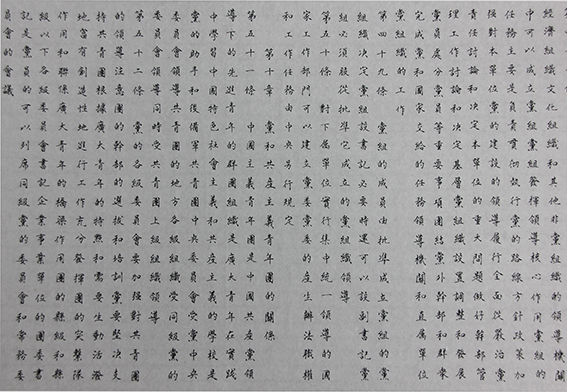 經濟組織文化組織和其他非黨組織的領導機關
中可以成立黨組黨組發揮領導核心作用黨組的
任務主要是負責貫徹執行黨的路線方針政策加
強對本單位黨的建設的領導履行全面從嚴治黨
責任討論和決定本單位的重大問題做好幹部管
理工作討論和決定基層黨組織設置調整和發展
黨員處分黨員等重要事項團結黨外幹部和群衆
完成黨和國家交給的任務領導機關和直屬單位
黨組織的工作
第四十九條 黨組的成員由批準成立黨組的黨
組織決定黨組設書記必要時還可以設副書記黨
組必須服從批準它成立的黨組織領導
第五十條 對下屬單位實行集中統一領導的國
家工作部門可以建立黨委黨委的產生辦法職權
和工作任務由中央另行規定
第十章 黨和共產主義青年團的關係
第五十一條 中國共產主義青年團是中國共產黨領
導下的先進青年的群團組織是廣大青年在實踐
中學習中國特色社會主義和共產主義的學校是
黨的助手和後備軍共青團中央委員會受黨中央
委員會領導共青團的地方各級組織受同級黨的
委員會領導同時受共青團上級組織領導
第五十二條 黨的各級委員會要加強對共青團
的領導注意團的幹部的選拔和培訓黨要堅決支
持共青團根據廣大青年的特點和需要生動活潑
地富有創造性地進行工作充分發揮團的突擊隊
作用和聯係廣大青年的橋樑作用團的縣級和縣
級以下各級委員會書記企業事業單位的團委書
記是黨員的可以列席同級黨的委員會和常務委
員會的會議